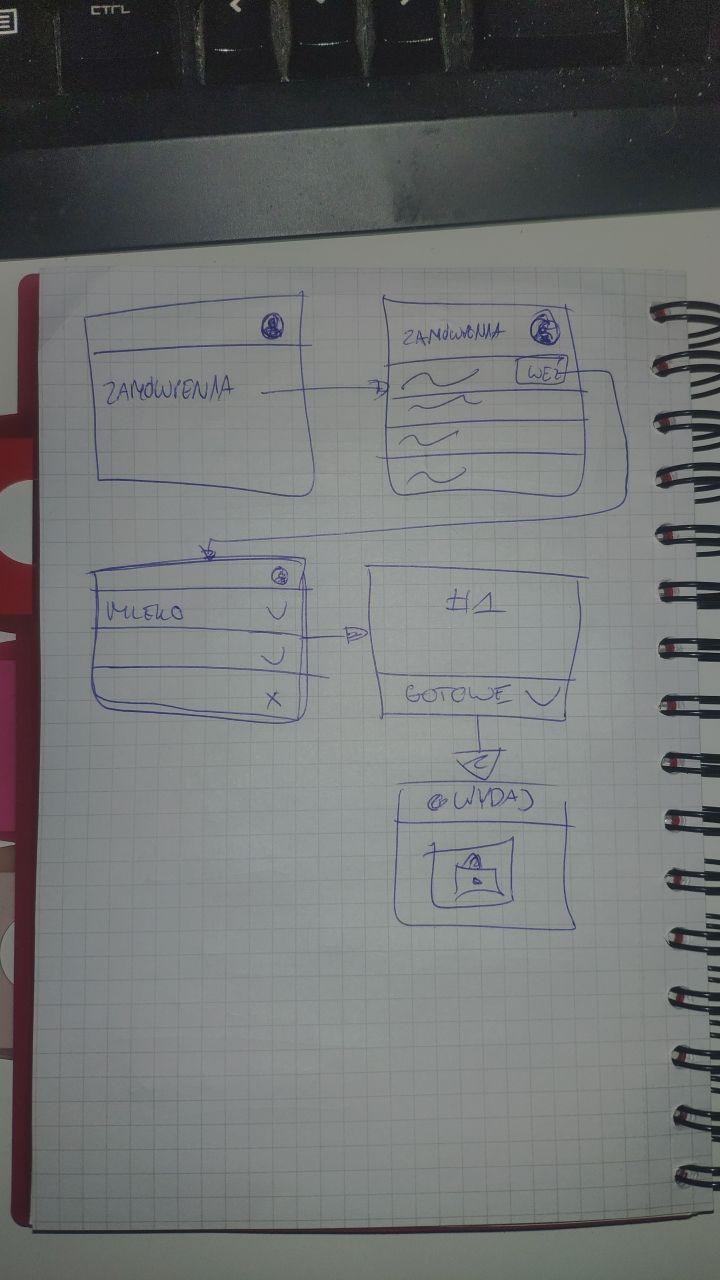 CTRL
ZAMÓWIENIA
ZAMÓWIENIA
WEŹ
MLEKO
#1
GOTOWE
WYDAJ